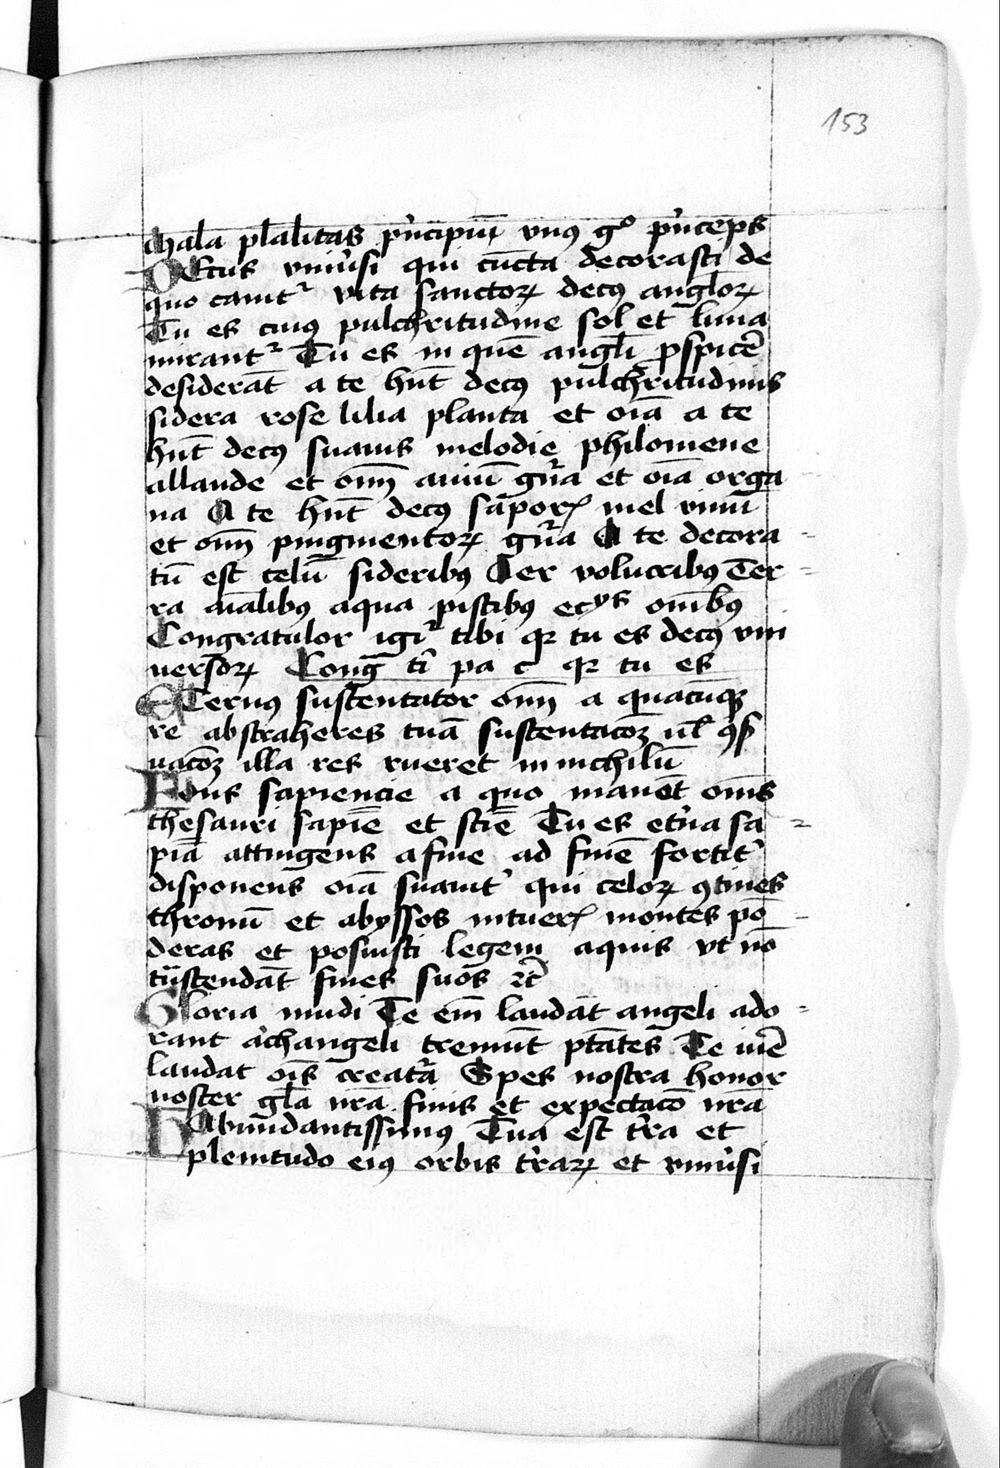 153
Mala pl̄alitas pͥncipiū vnꝰ gͦ pͥnceps
DEcus vniu̓si qui cūcta decorasti de
quo canitᷣ vita sanctoꝝ decꝰ angl̄oꝝ
Tu es cuiꝰ pulchritudine sol et luna
mirantᷣ Tu es in quē angl̄i ꝓspice̓
desiderāt a te hn̄t decꝰ pulchritudinis
sidera rose lilia planta et oīa a te
hn̄t decꝰ suauis melodie philomene
allaude et oīm auiū gn̓a et oīa orga
na A te hn̄t decꝰ saporꝭ mel vinū
et oīm pingmentoꝝ gn̓a A te decora
tū est celū sideribꝰ Aer volucribꝰ Ter
ra aīalibꝰ aqua piscibꝰ ec̓ys om̄ibꝰ
Congratulor igiᷣ tibi qꝛ tu es decꝰ vni
uersoꝝ Conḡ tī pa c qꝛ tu es
ETernꝰ sustentator oīm a quacūqꝫ
re abstraheres tuā sustentacōꝫ ul̄ ꝯẜ
uacōꝫ illa res rueret in nichilū
Fons sapiencie a quo manēt om̄s
thesauri sapiē et sciē Tu es etn̓a sa
piā attingens a fine ad finē fortit̓
disponens oīa suauit̓ qui celoꝝ ꝯtines
thronū et abyssos intuerꝭ montes pō
deras et posuisti legem aquis vt nō
tᷓscendāt fines suos ⁊c̄
Gloria mūdi Te eīm laudāt angeli ado
rant aͬchangeli tremūt ptātes Te
laudat oīs creatᷓa Spes nostra honor
noster gl̄a nr̄a finis et expectacō nr̄a
HAbundantissimꝰ Tua est tr̄a et
plenitudo eiꝰ orbis tr̓aꝝ et vniu̓si